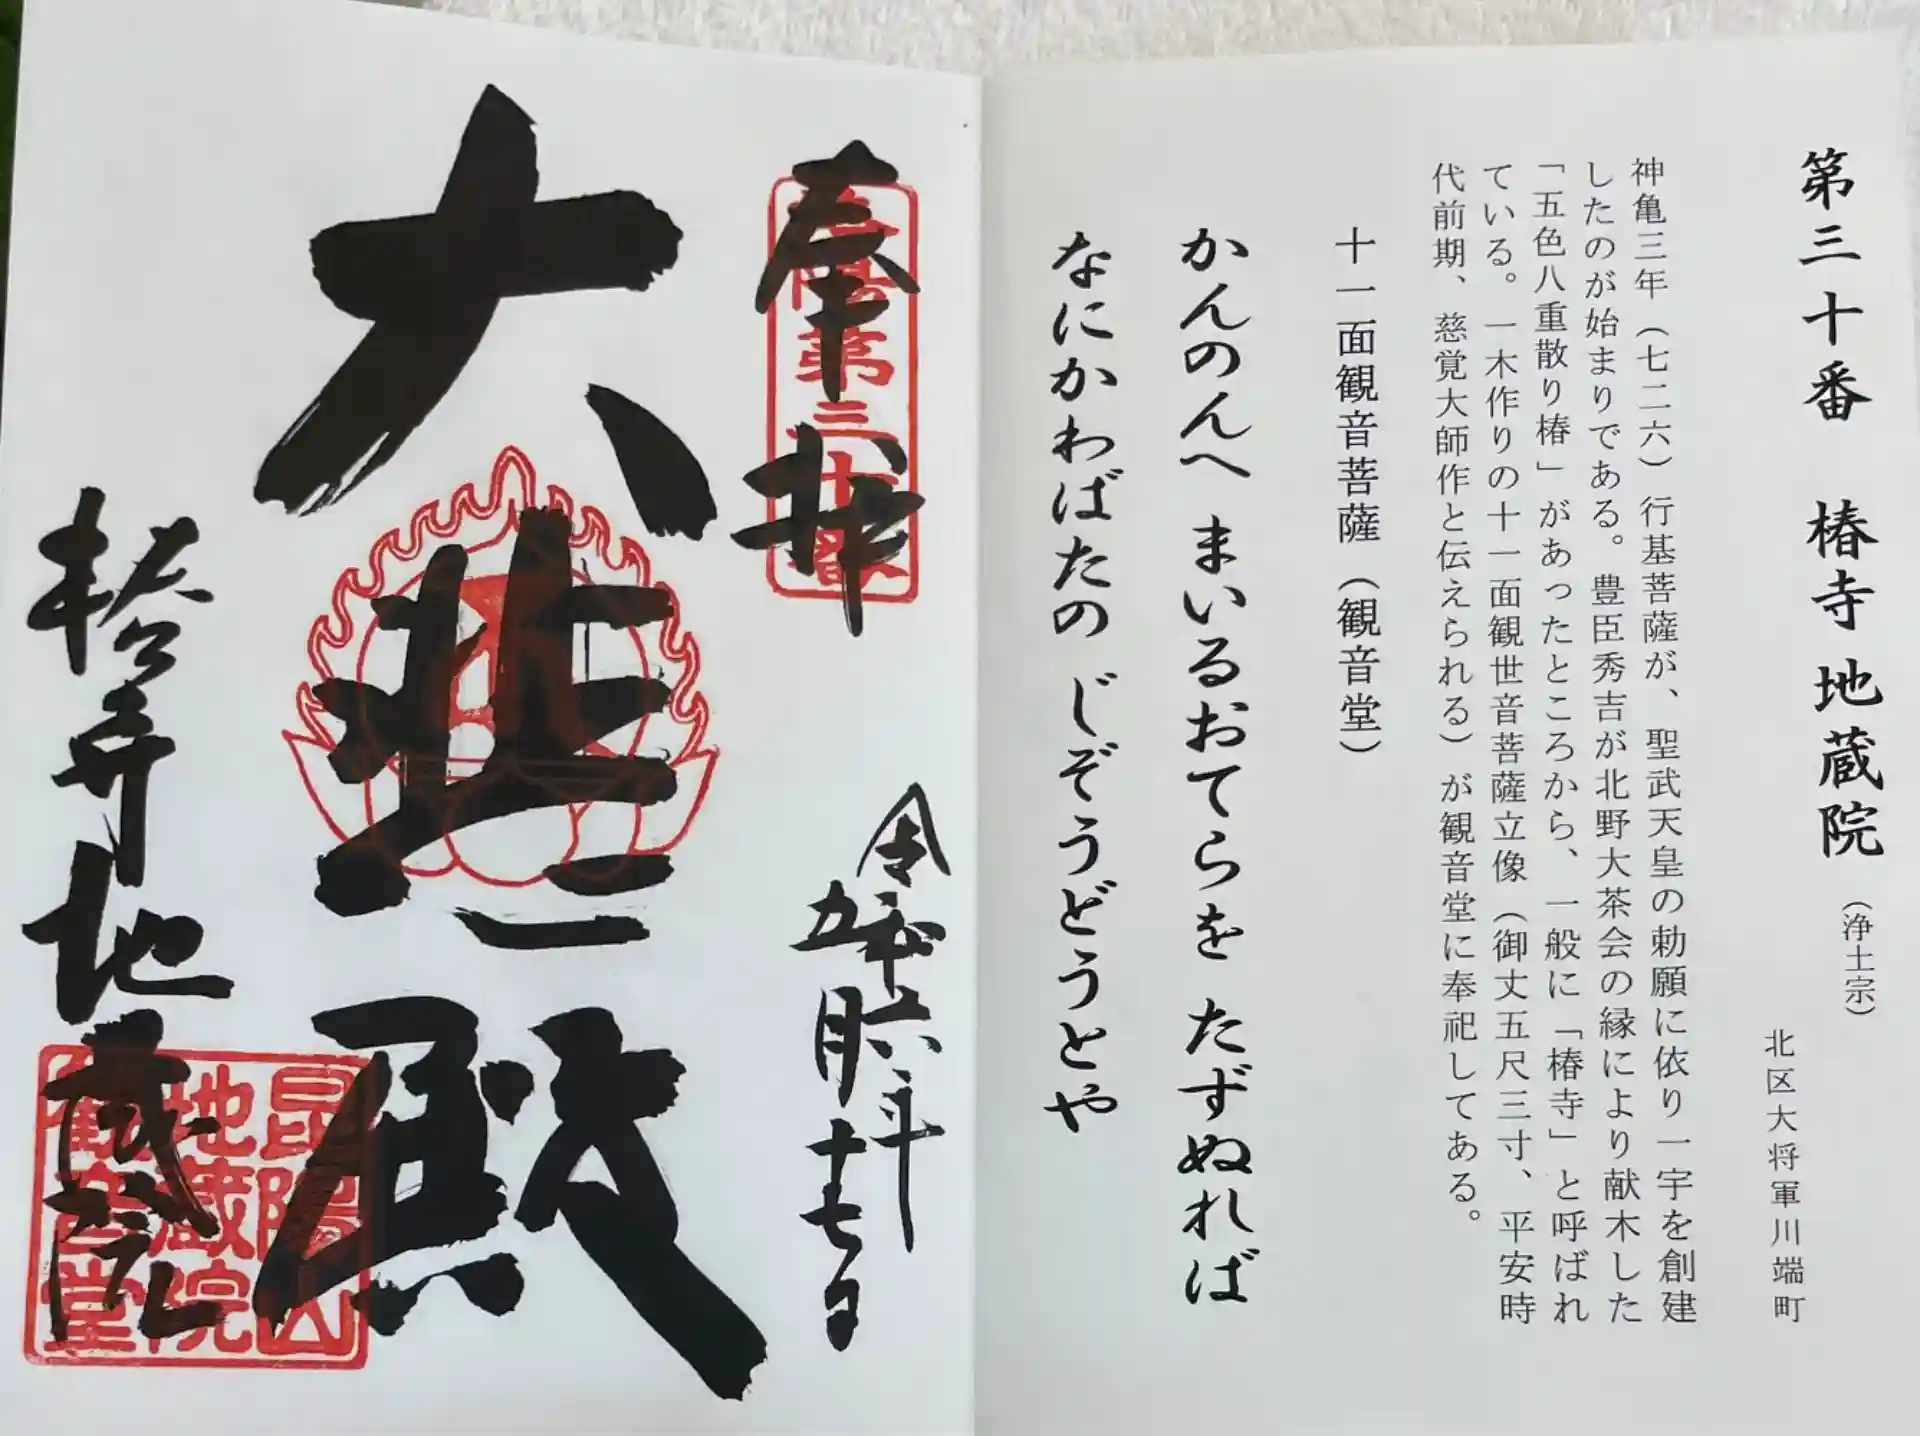 第三十番 椿寺 地蔵院(浄土宗)
北区大将軍川端町
神亀三年(七二六)行基菩薩が、聖武天皇の勅願に依り一宇を創建
したのが始まりである。豊臣秀吉が北野大茶会の縁により献木した
「五色八重散り椿」があったところから、一般に「椿寺」と呼ばれ
ている。一木作りの十一面観世音菩薩立像(御丈五尺三寸、平安時
代前期、慈覚大師作と伝えられる)が観音堂に奉祀してある。
十一面観音菩薩(観音堂)
かんのんへ まいるおてらを たずぬれば
なにかわばたの じぞうどうとや
奉拝
洛陽第三十番
令和六年
五月十七日
大悲殿
椿寺地蔵院
昆陽山
地蔵院
観音堂